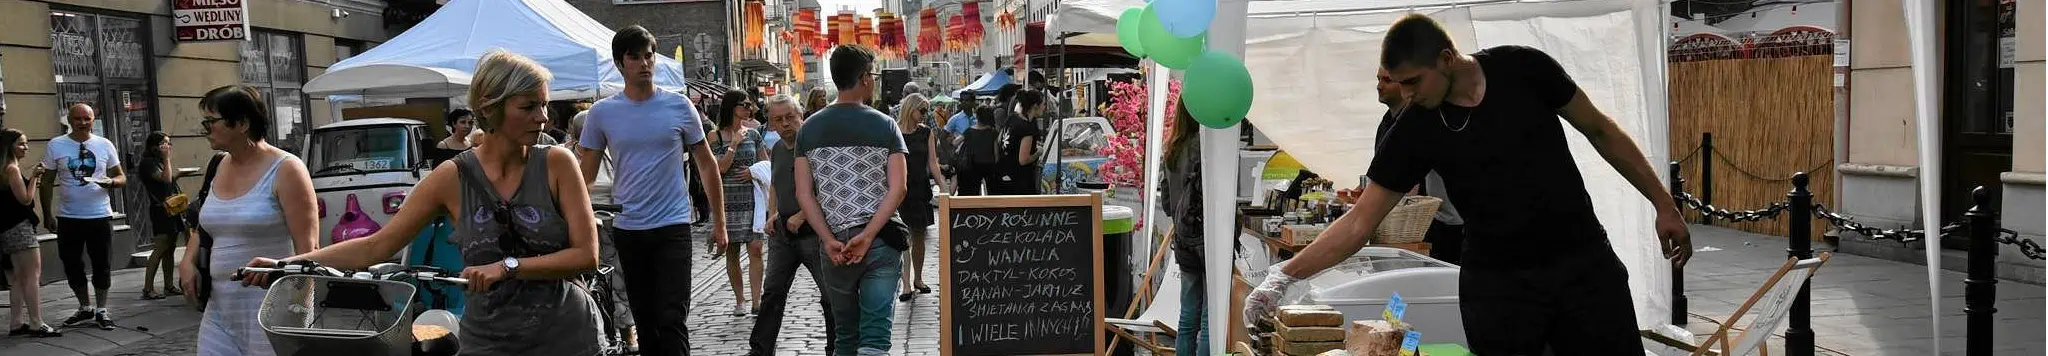 MIĘSO
WĘDLINY
DRÓB
1362
LODY ROŚLINNE
CZEKOLADA
WANILIA
DAKTYL-KOKOS
BANAN-JARMUŻ
ŚMIETANKA Z AGAWĄ
I WIELE INNYCH!!